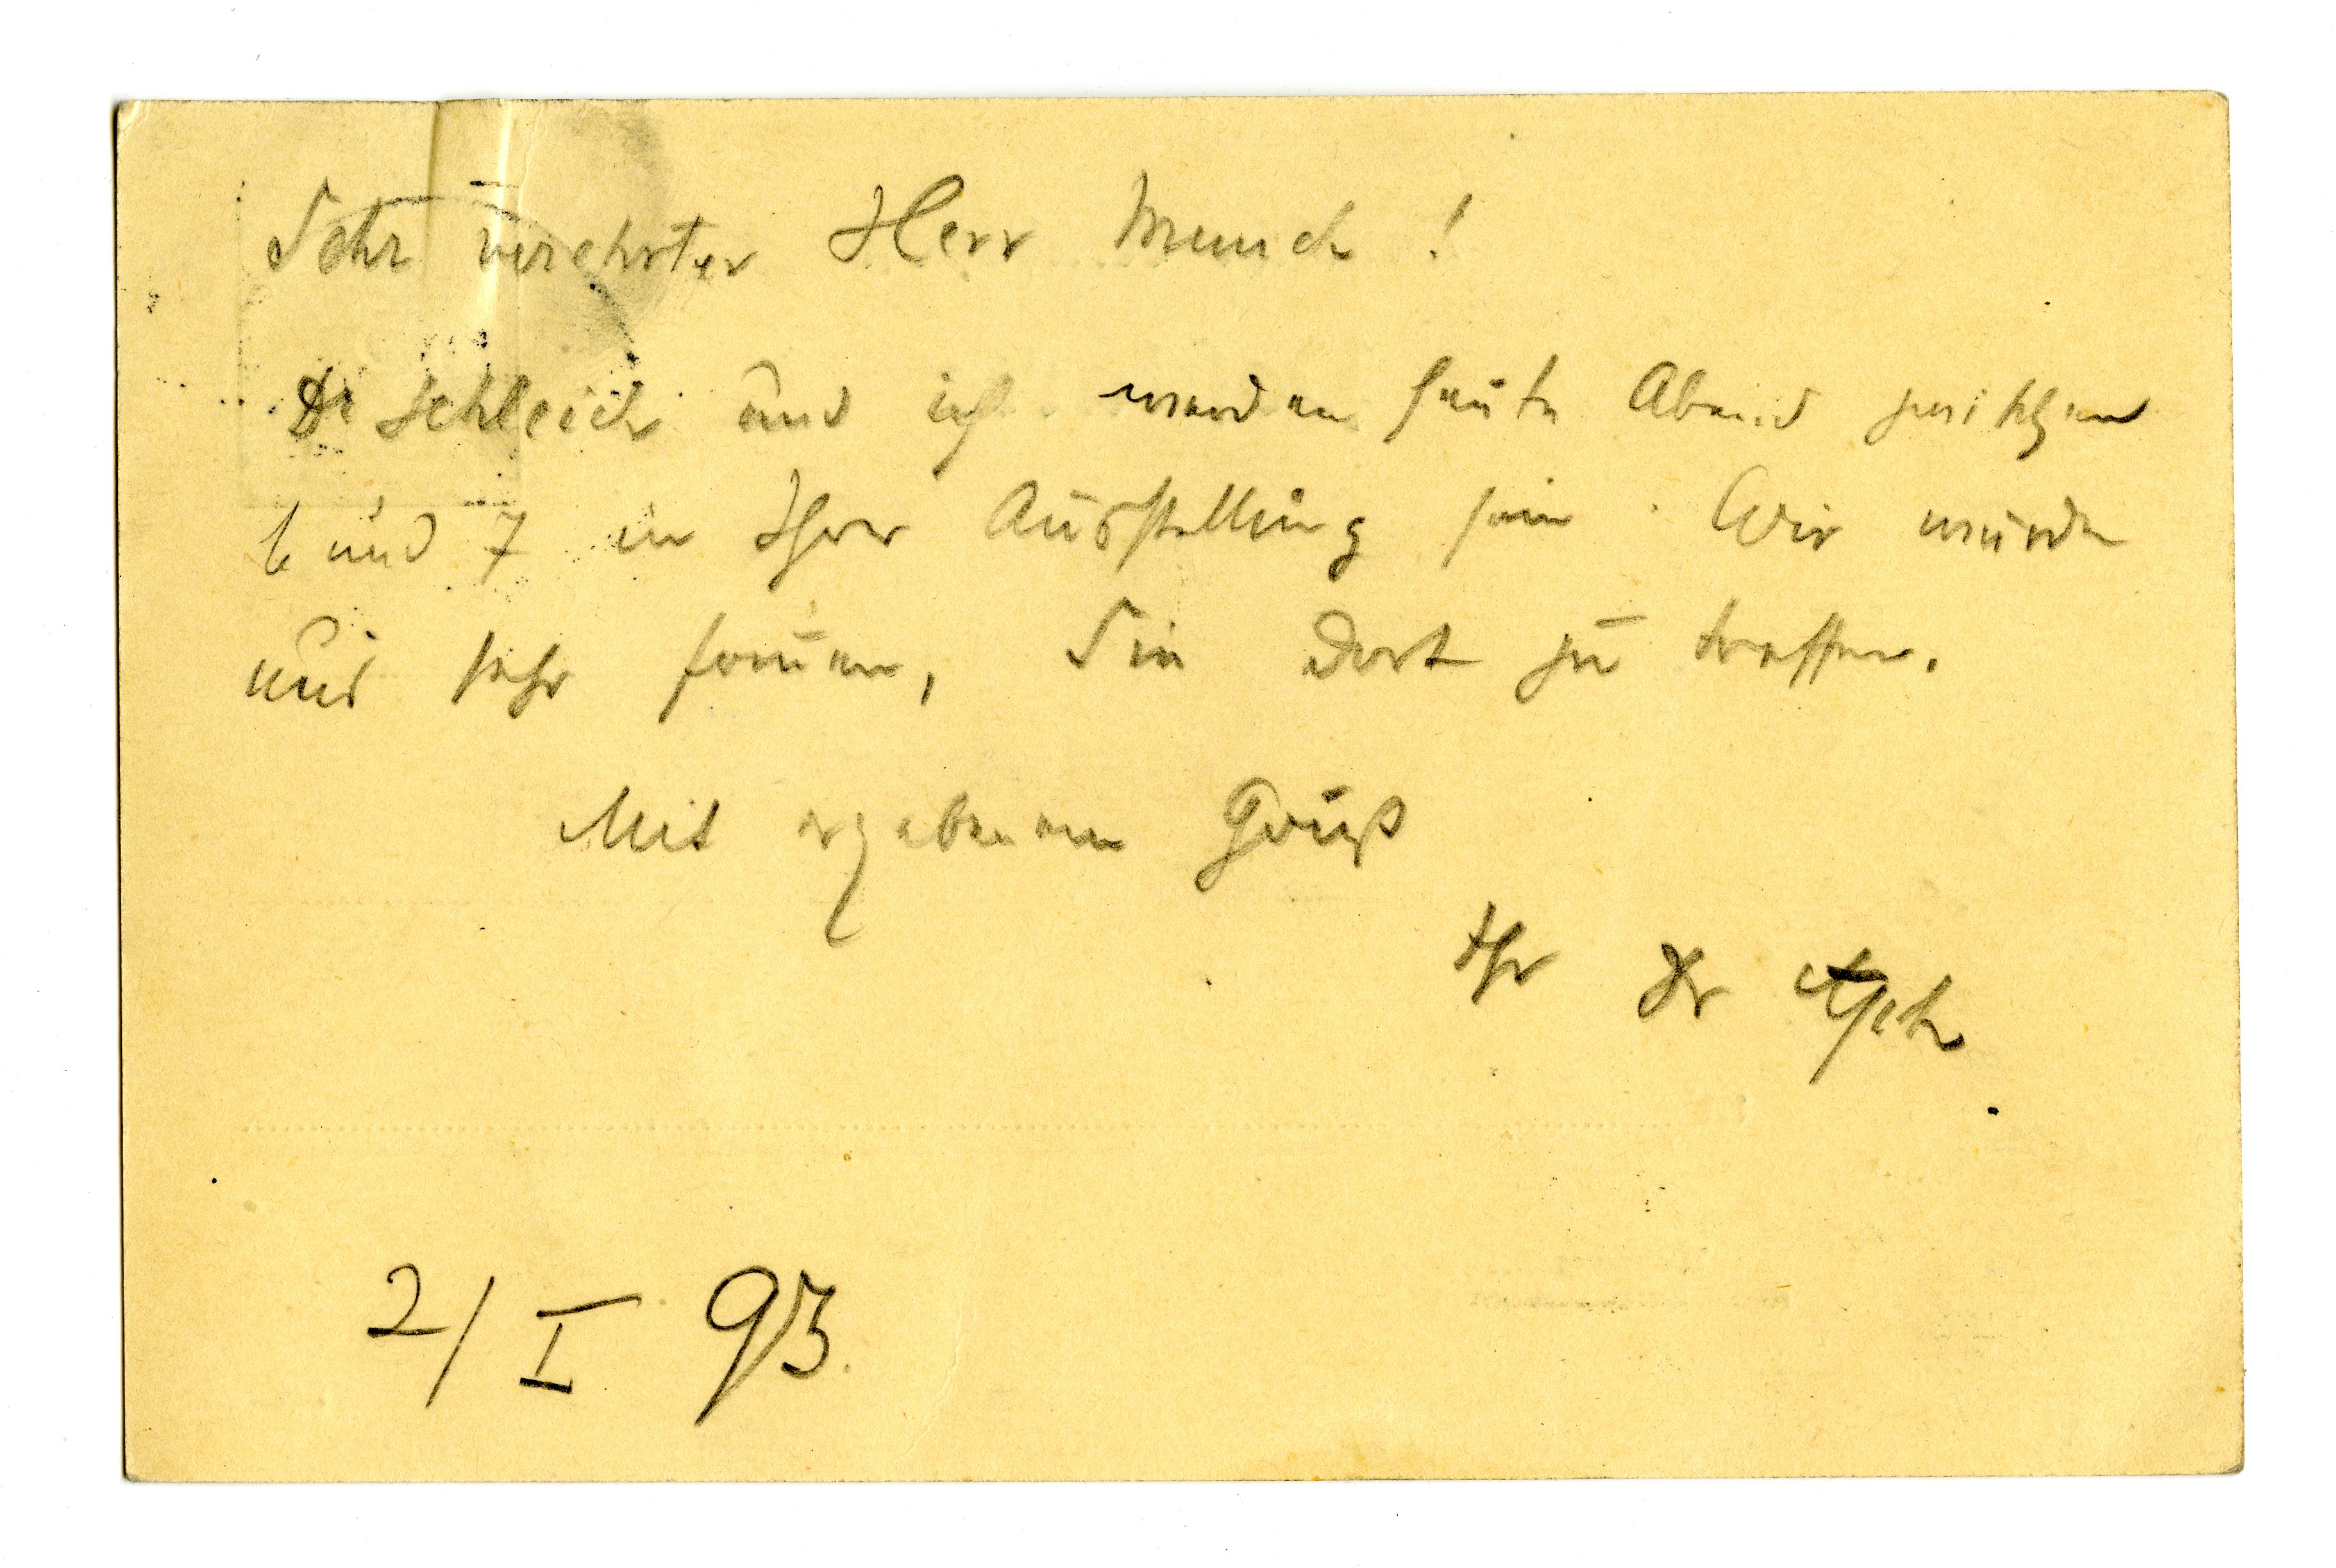 Sehr verehrter Herr Munch!
Dr Schleich und ich werden heute Abend zwischen
6 und 7 in Ihrer Ausstellung sein. Wir würden
uns sehr freuen, Sie dort zu treffen.
Mit ergebenem Gruß
Ihr Dr Asch
2/I 93.